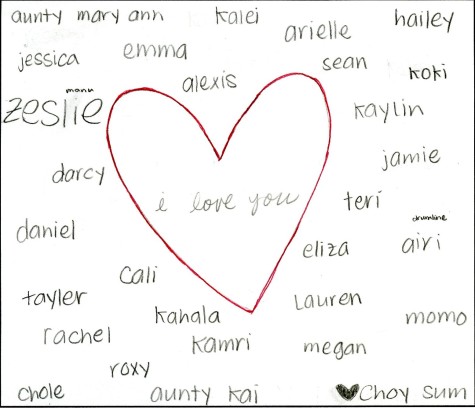 aunty mary ann
kalei
arielle
hailey
jessica
emma
alexis
sean
koki
mann
zeslie
kaylin
jamie
darcy
i love you
teri
drumline
daniel
eliza
airi
cali
tayler
kahala
Lauren
momo
rachel
kamri
megan
roxy
chole
aunty kai
Choy Sum